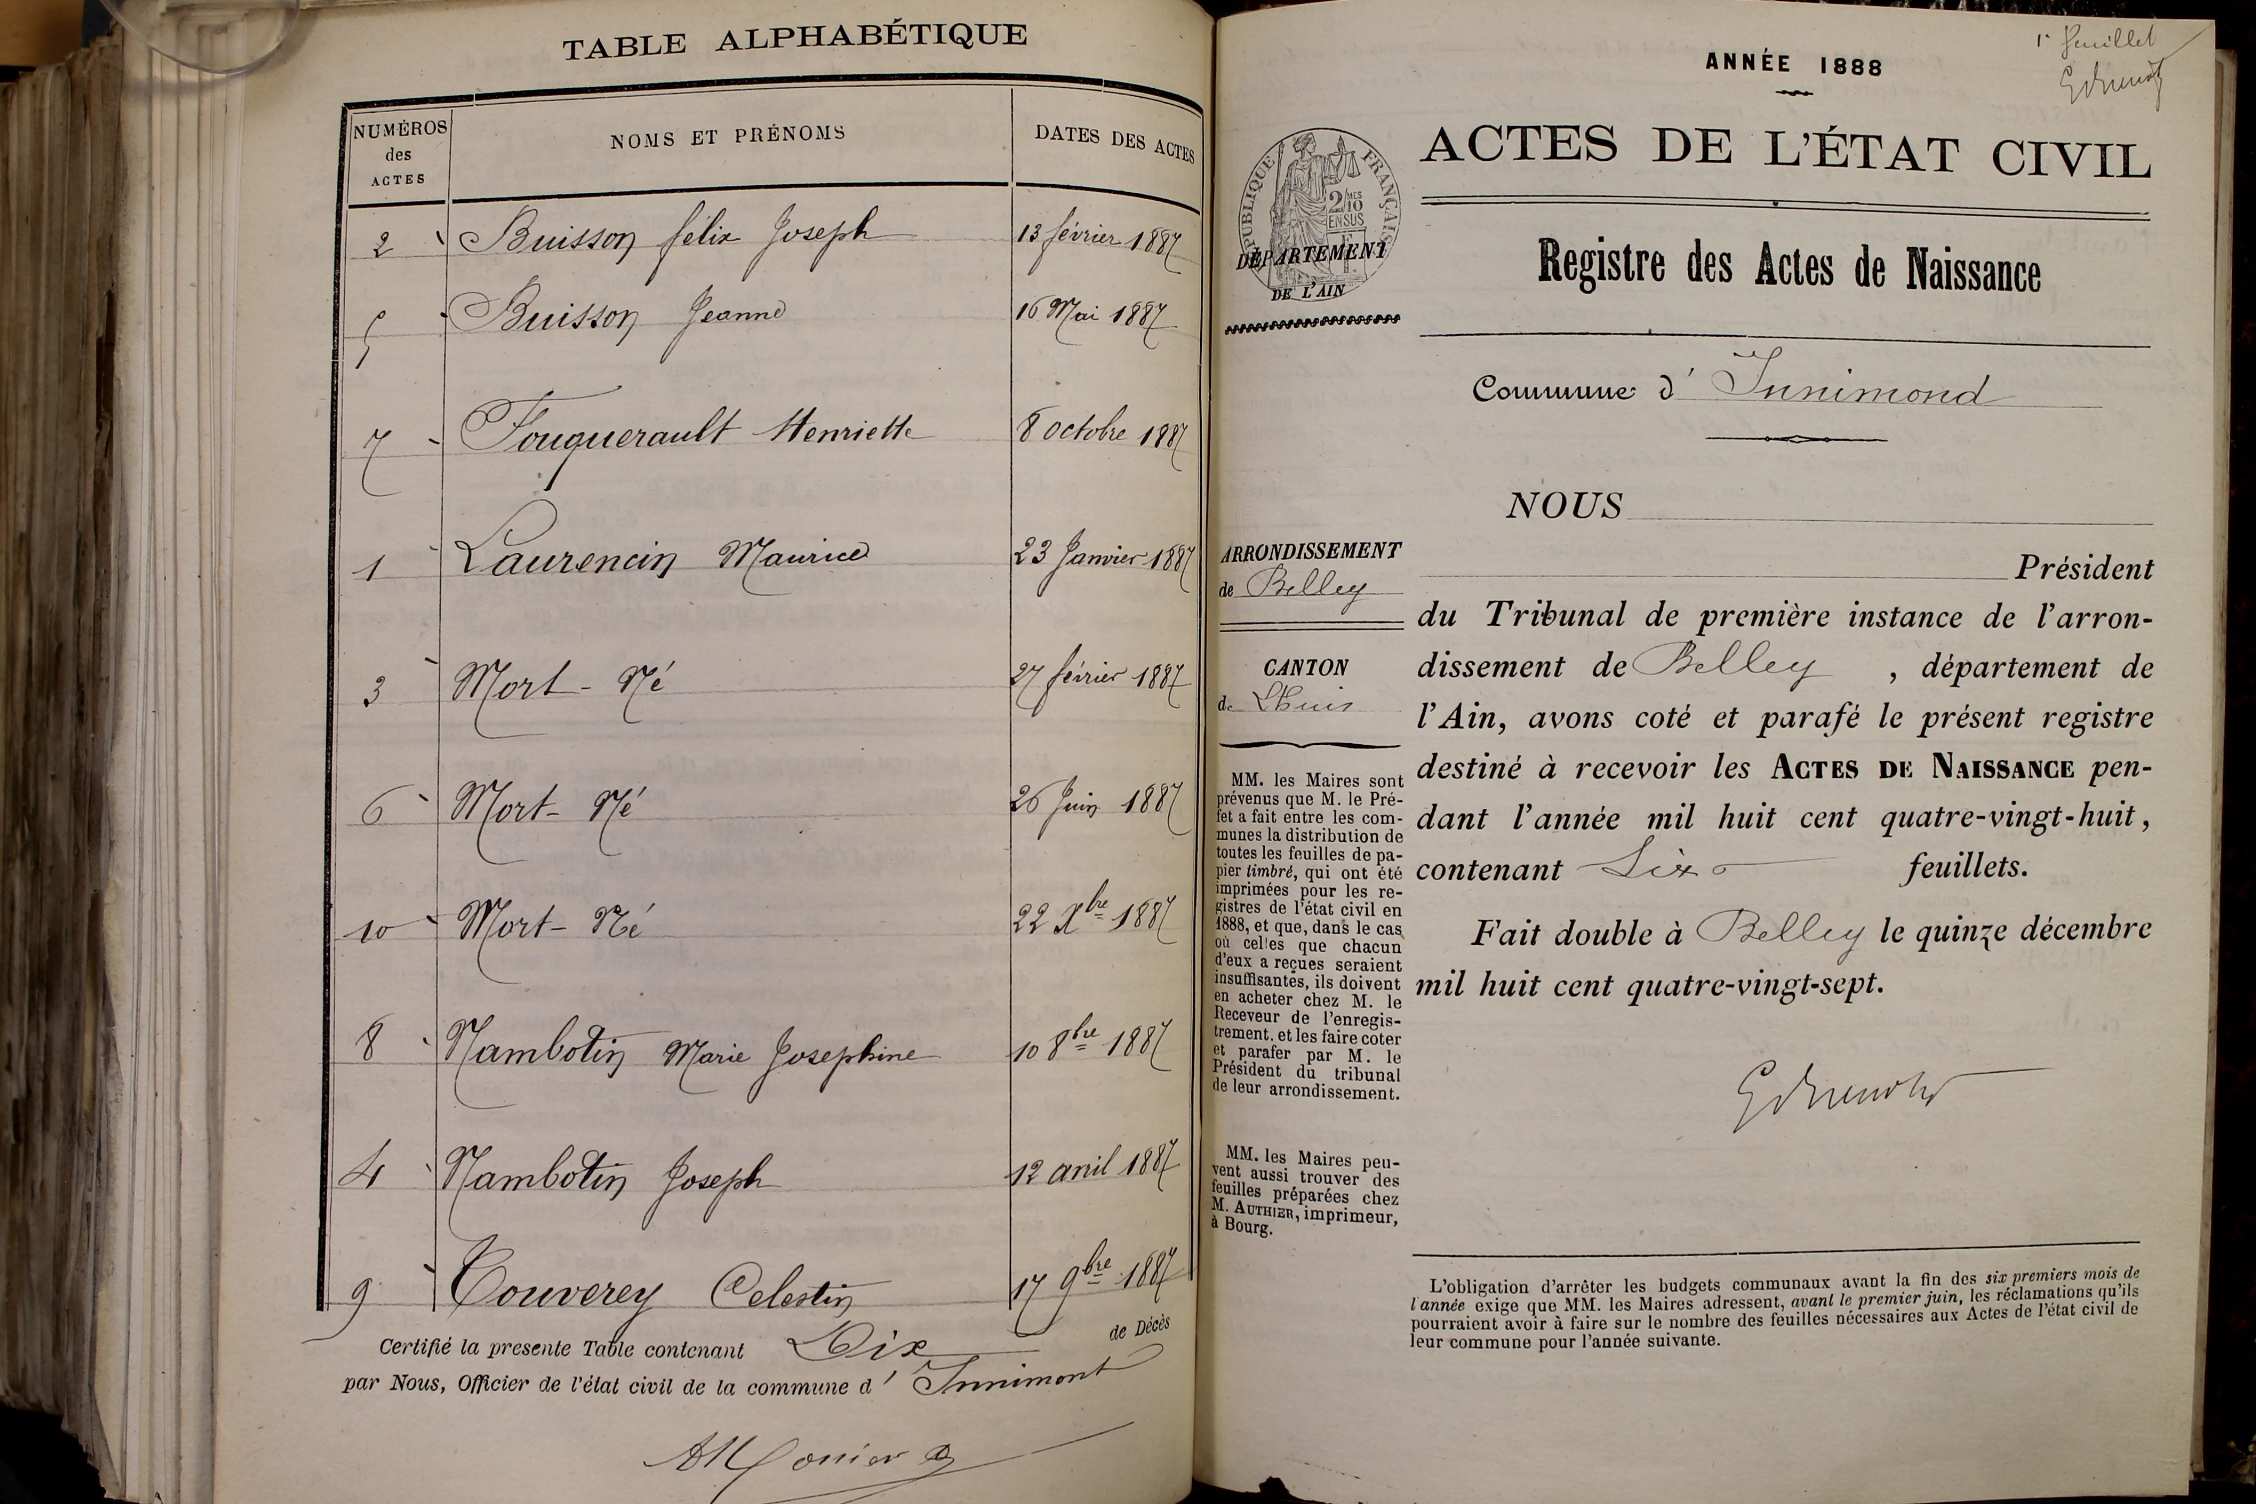 TABLE ALPHABÉTIQUE
NUMÉROS
des
ACTES
NOMS ET PRÉNOMS
DATES DES ACTES
2 Buisson félix Joseph 13 février 1887
5 Buisson Jeanne 16 Mai 1887
7 Fouquerault Henriette 8 octobre 1887
1 Laurencin Maurice 23 Janvier 1887
3 Mort-Né 27 février 1887
6 Mort-Né 26 Juin 1887
10 Mort-Né 22 Xbre 1887
8 Nambotin Marie Josephine 10 8bre 1887
4 Nambotin Joseph 12 avril 1887
9 Touverey Celestin 17 9bre 1887
Certifié la presente Table contenant Dix de Décès
par Nous, Officier de l'état civil de la commune d' Innimont
1r feuillet
ANNÉE 1888
ACTES DE L'ÉTAT CIVIL
RÉPUBLIQUE FRANÇAISE
2/10 MES
EN SUS
DÉPARTEMENT
DE L'AIN
Registre des Actes de Naissance
Commune d' Innimond
NOUS
Président
du Tribunal de première instance de l'arron-
dissement de Belley, département de
l'Ain, avons coté et parafé le présent registre
destiné à recevoir les ACTES DE NAISSANCE pen-
dant l'année mil huit cent quatre-vingt-huit,
contenant Six feuillets.
Fait double à Belley le quinze décembre
mil huit cent quatre-vingt-sept.
ARRONDISSEMENT
de Belley
CANTON
de Lhuis
MM. les Maires sont
prévenus que M. le Pré-
fet a fait entre les com-
munes la distribution de
toutes les feuilles de pa-
pier timbré, qui ont été
imprimées pour les re-
gistres de l'état civil en
1888, et que, dans le cas
où celles que chacun
d'eux a reçues seraient
insuffisantes, ils doivent
en acheter chez M. le
Receveur de l'enregis-
trement, et les faire coter
et parafer par M. le
Président du tribunal
de leur arrondissement.
MM. les Maires peu-
vent aussi trouver des
feuilles préparées chez
M. AUTHIER, imprimeur,
à Bourg.
L'obligation d'arrêter les budgets communaux avant la fin des six premiers mois de
l'année exige que MM. les Maires adressent, avant le premier juin, les réclamations qu'ils
pourraient avoir à faire sur le nombre des feuilles nécessaires aux Actes de l'état civil de
leur commune pour l'année suivante.